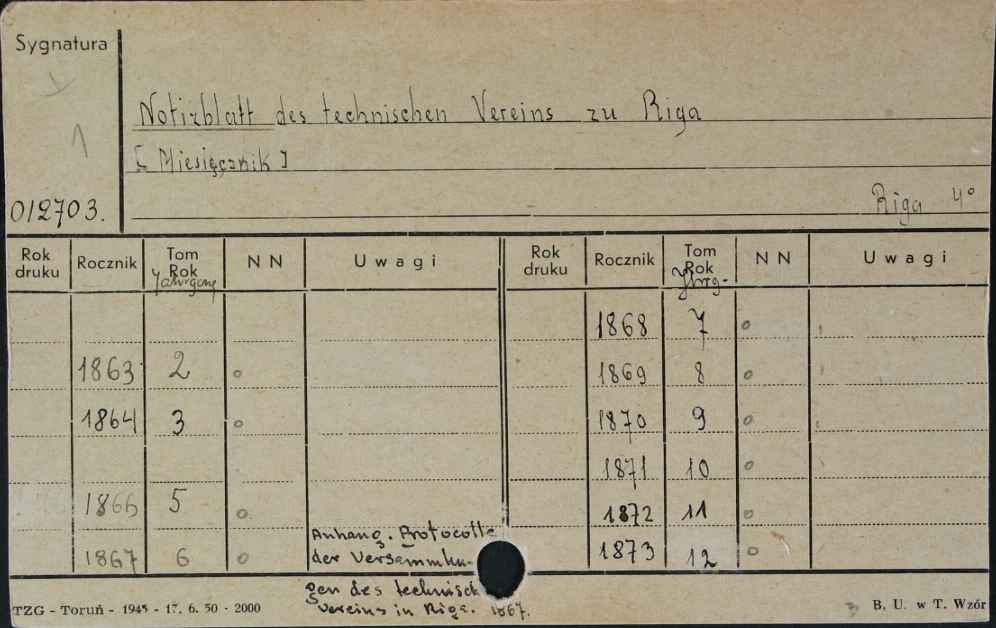 Sygnatura
1
Notizblatt des technischen Vereins zu Riga
[Miesięcznik]
012703.
Riga 4°
Rok druku Rocznik Tom Rok Jahrgang NN Uwagi Rok druku Rocznik Tom Rok Jhrg. NN Uwagi
1868 7 o
1863 2 o 1869 8 o
1864 3 o 1870 9 o
1871 10 o
1866 5 o 1872 11 o
1867 6 o Anhang. Protocolle 1873 12 o
der Versammlun-
gen des technisch
Vereins in Riga. 1867.
TZG - Toruń - 1945 - 17. 6. 50 - 2000 B. U. w T. Wzór